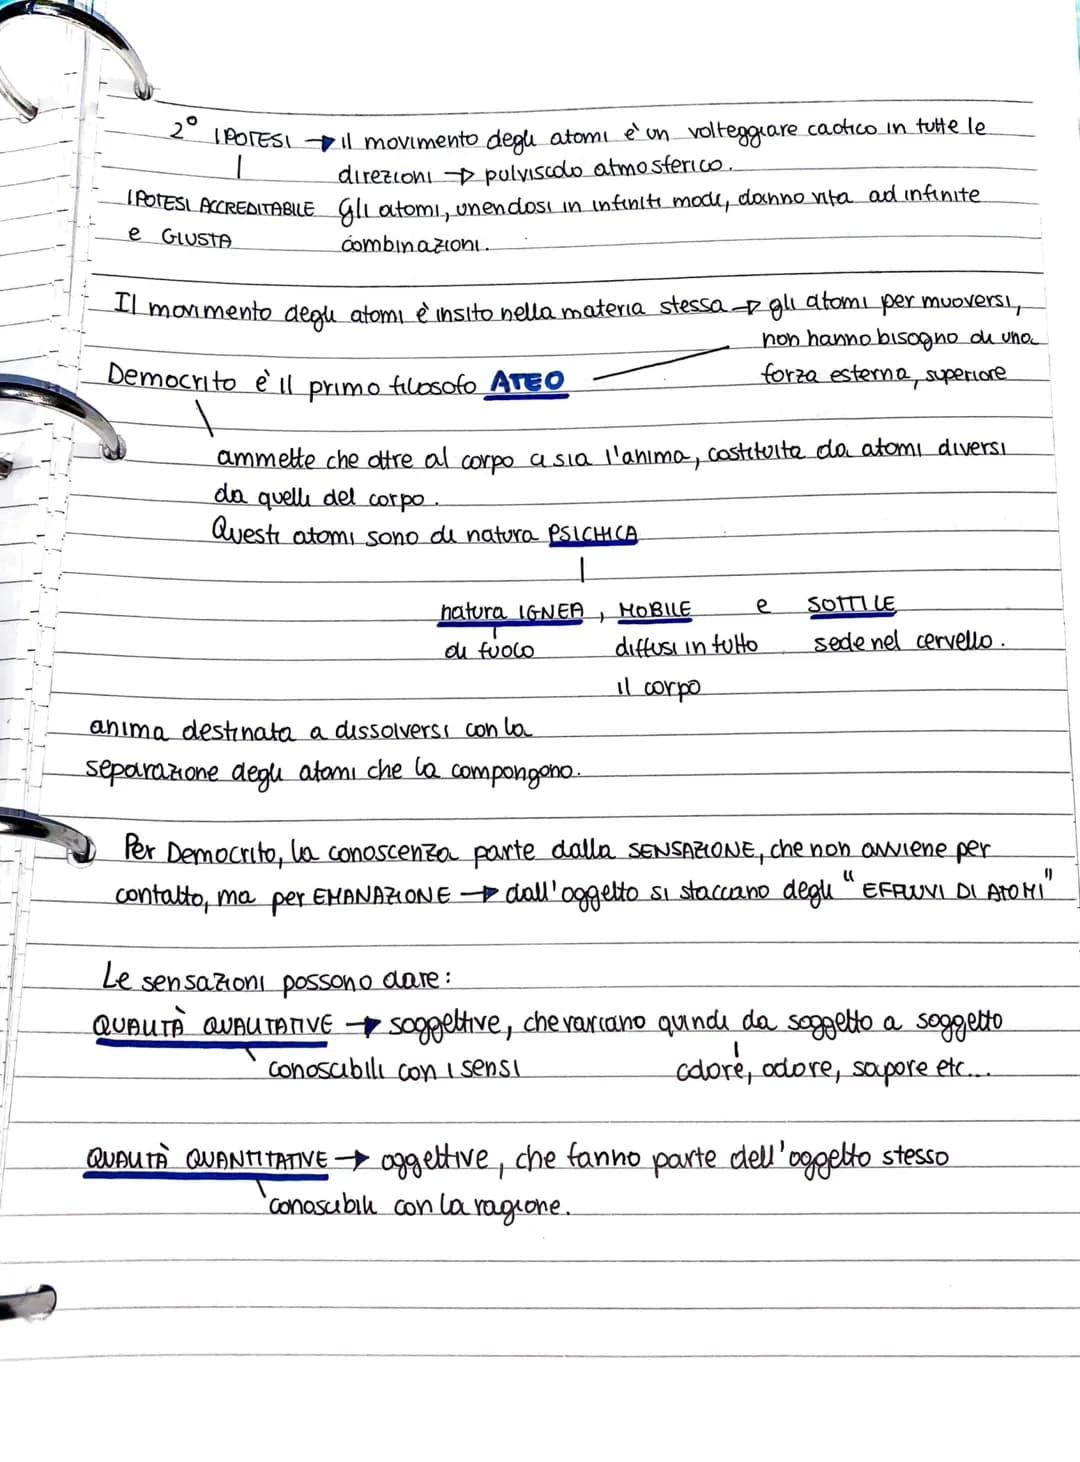 2° IPOTESI → il movimento degli atomi è un volteggiare caotico in tutte le
direzioni → pulviscolo atmosferico.
IPOTESI ACCREDITABILE Gli atomi, unendosi in infiniti modi, danno vita ad infinite
e GIUSTA combinazioni.
Il movimento degli atomi è insito nella materia stessa → gli atomi per muoversi,
non hanno bisogno di una
Democrito è il primo filosofo ATEO forza esterna, superiore
ammette che oltre al corpo ci sia l'anima, costituita da atomi diversi
da quelli del corpo.
Questi atomi sono di natura PSICHICA
natura IGNEA, MOBILE e SOTTILE
di fuoco diffusi in tutto sede nel cervello.
il corpo
anima destinata a dissolversi con la
separazione degli atomi che la compongono.
Per Democrito, la conoscenza parte dalla SENSAZIONE, che non avviene per
contatto, ma per EMANAZIONE → dall'oggetto si staccano degli "EFFLUVI DI ATOMI"
Le sensazioni possono dare:
QUALITÀ QUALITATIVE → soggettive, che variano quindi da soggetto a soggetto
conoscibili con i sensi colore, odore, sapore etc...
QUALITÀ QUANTITATIVE → oggettive, che fanno parte dell'oggetto stesso
conoscibili con la ragione.